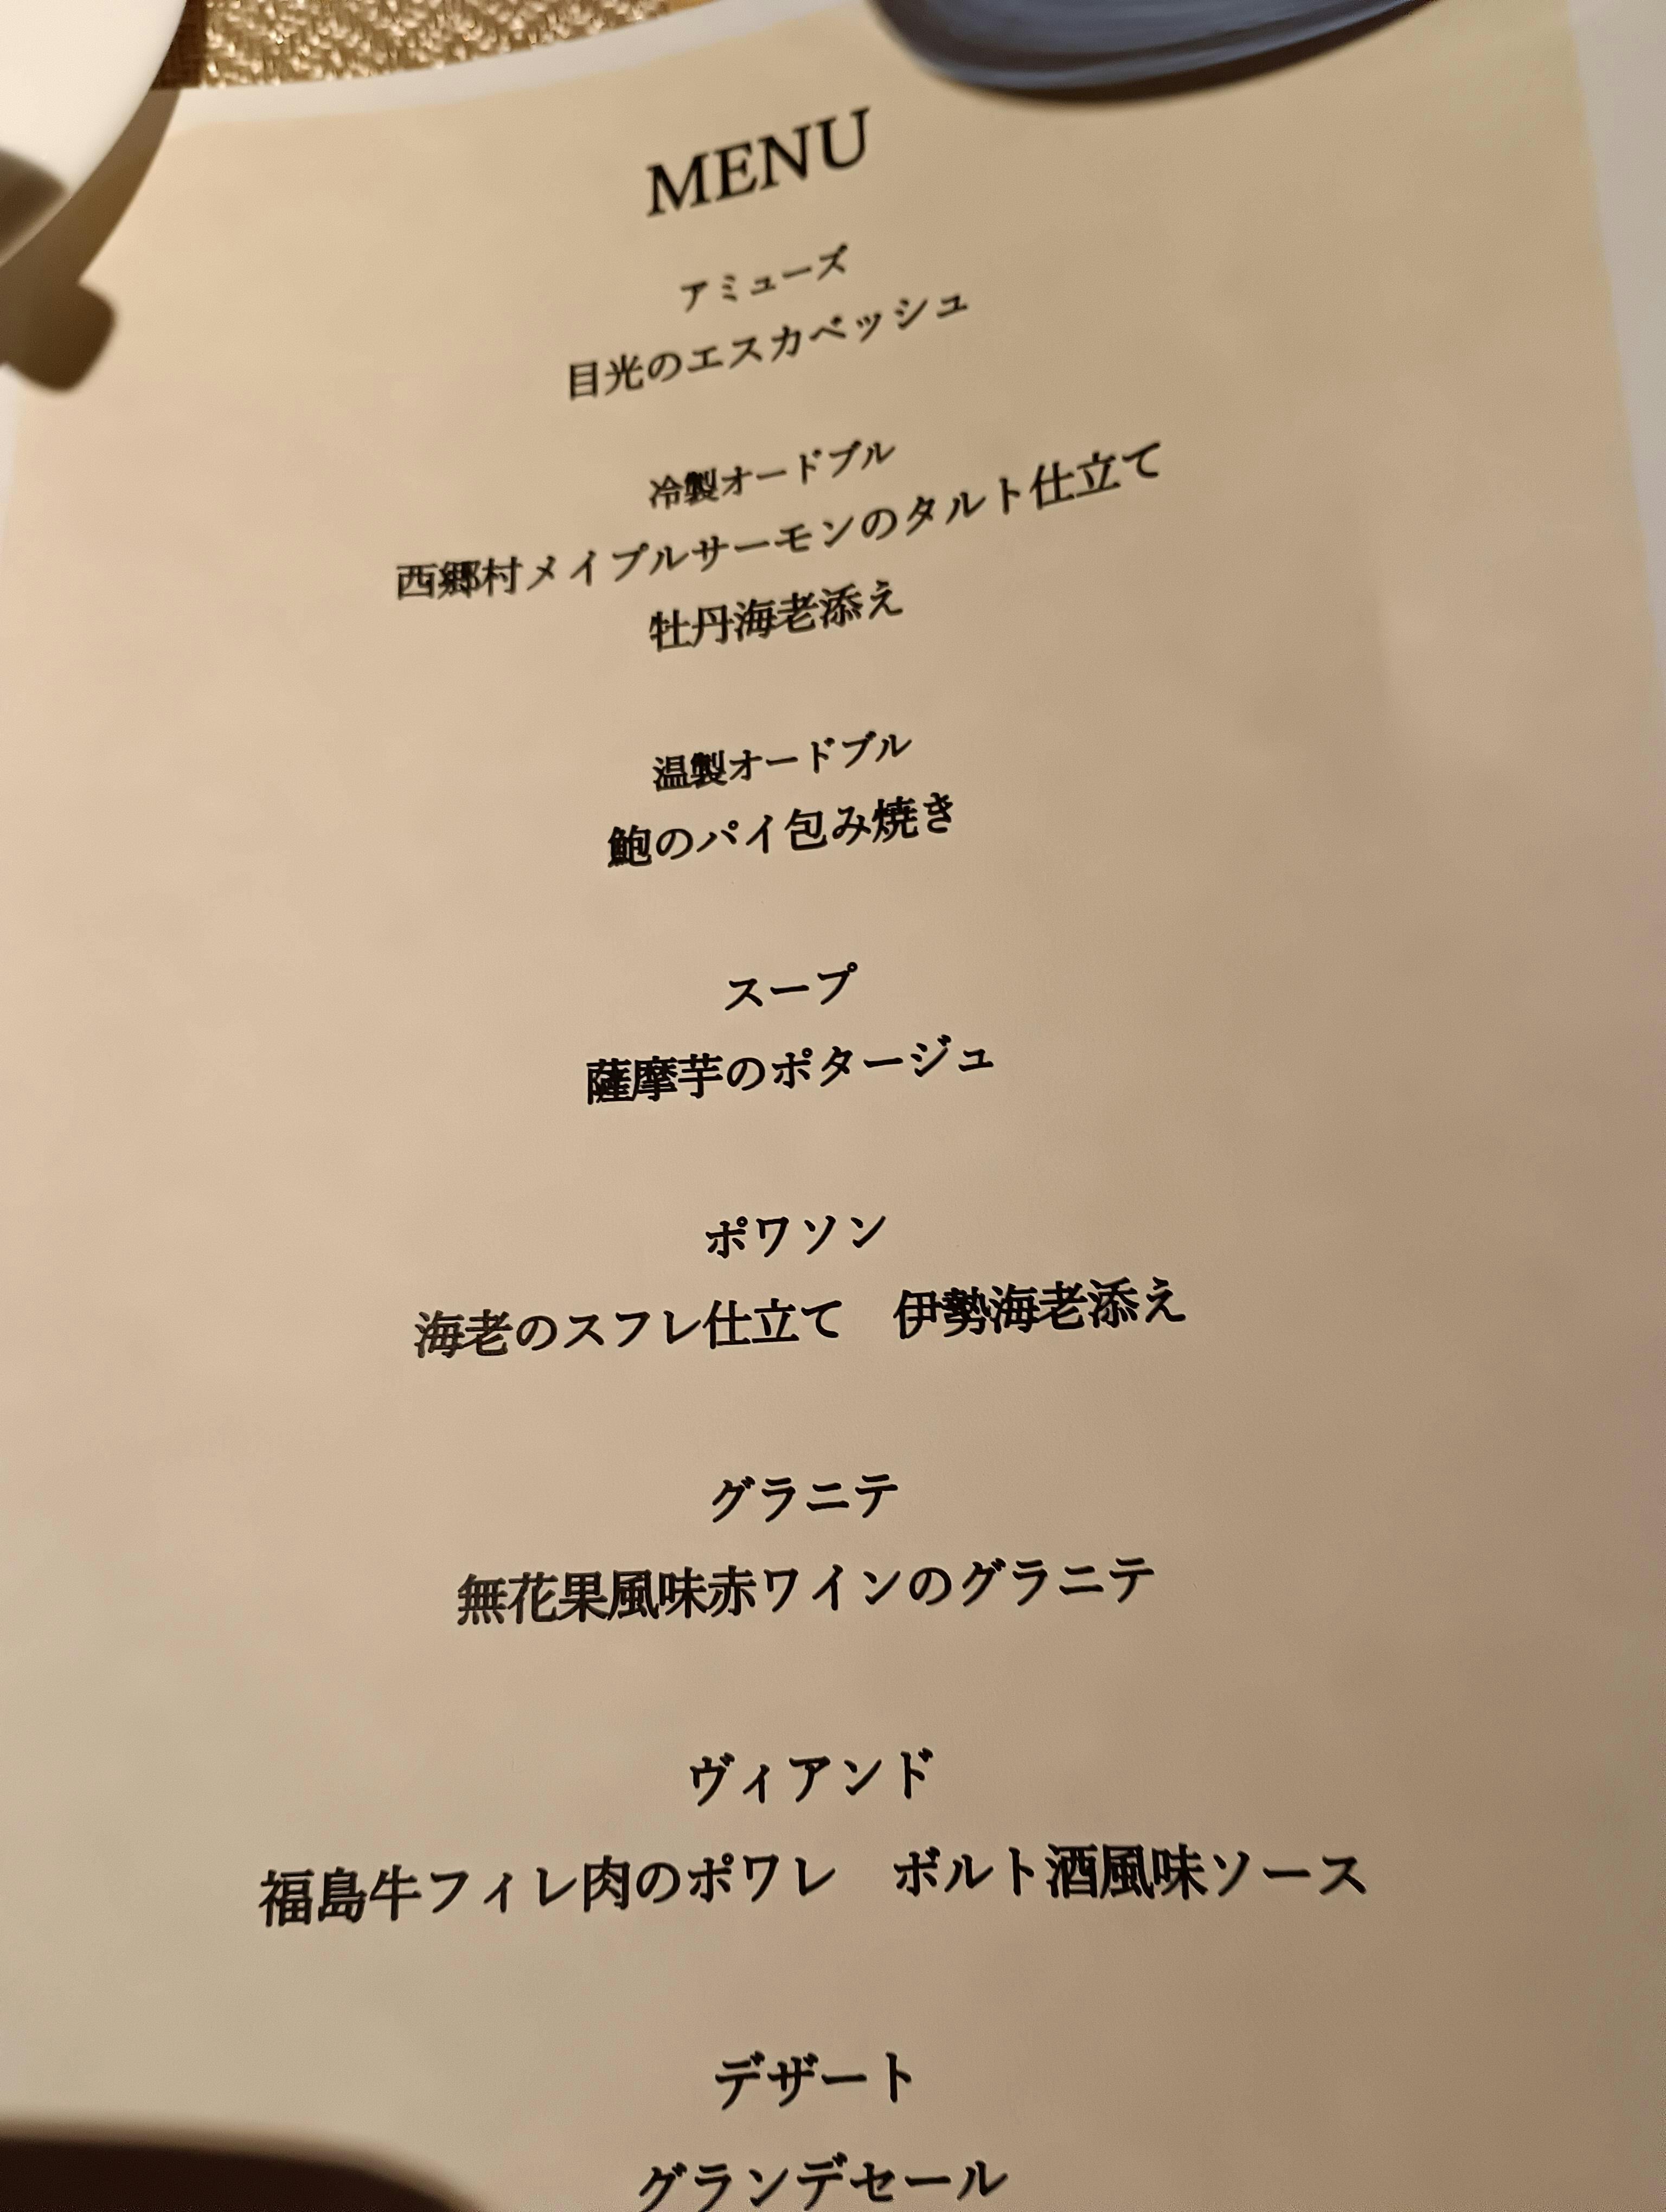 MENU
アミューズ
目光のエスカベッシュ
冷製オードブル
西郷村メイプルサーモンのタルト仕立て
牡丹海老添え
温製オードブル
鮑のパイ包み焼き
スープ
薩摩芋のポタージュ
ポワソン
海老のスフレ仕立て　伊勢海老添え
グラニテ
無花果風味赤ワインのグラニテ
ヴィアンド
福島牛フィレ肉のポワレ　ボルト酒風味ソース
デザート
グランデセール